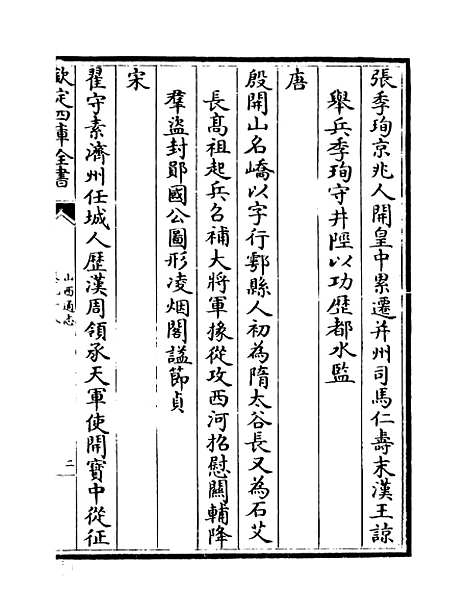 張季珣京兆人開皇中累遷并州司馬仁壽末漢王諒
舉兵季珣守井陘以功歴都水監
唐
殷開山名嶠以字行鄠縣人初為隋太谷長又為石艾
長髙祖起兵召補大將軍掾從攻西河招慰關輔降
羣盜封鄖國公圖形凌烟閣諡節貞
宋
翟守素濟州任城人歴漢周領承天軍使開寳中從征
欽定四庫全書
山西通志
二